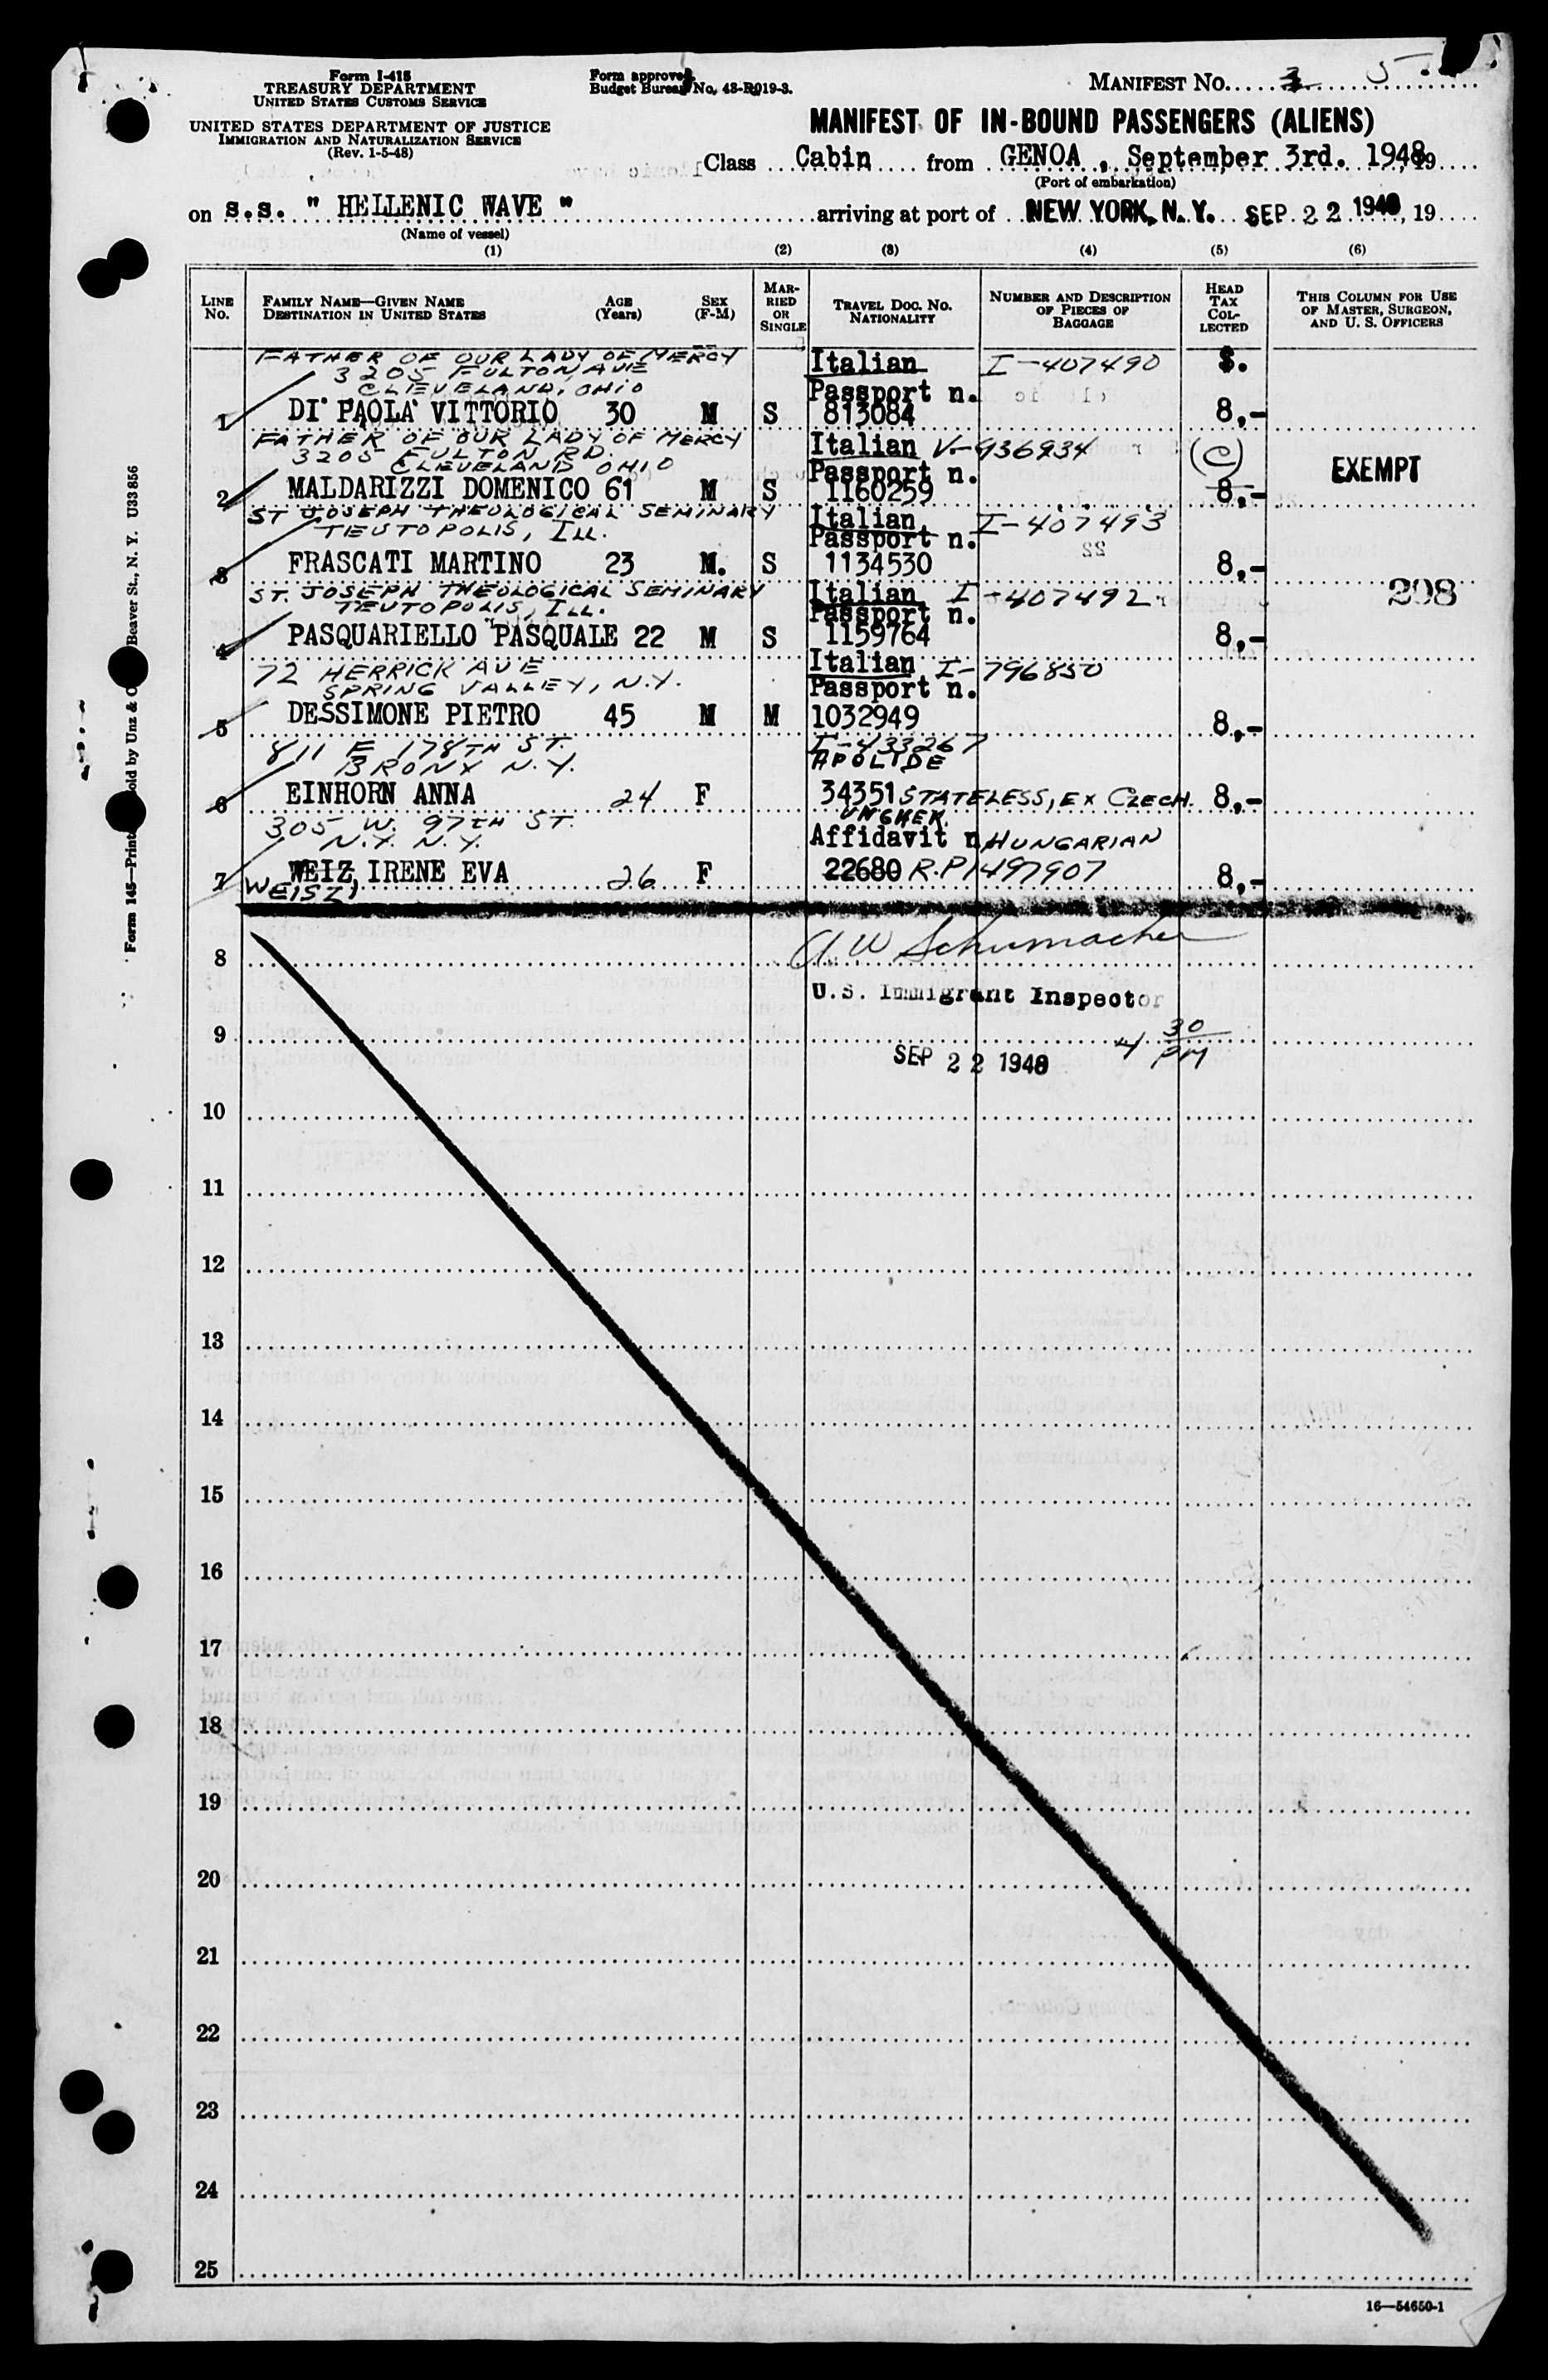 Form I-415
TREASURY DEPARTMENT
UNITED STATES CUSTOMS SERVICE
UNITED STATES DEPARTMENT OF JUSTICE
IMMIGRATION AND NATURALIZATION SERVICE
(Rev. 1-5-48)
Form approved.
Budget Bureau No. 43-R019-3.
MANIFEST No. 5
MANIFEST OF IN-BOUND PASSENGERS (ALIENS)
Class Cabin from GENOA, September 3rd. 1948, 19
(Port of embarkation)
on s.s. " HELLENIC WAVE " arriving at port of NEW YORK, N. Y. SEP 22 1948, 19
(Name of vessel)
(1) (2) (3) (4) (5) (6)
LINE No. FAMILY NAME—GIVEN NAME DESTINATION IN UNITED STATES AGE (Years) SEX (F-M) MARRIED OR SINGLE TRAVEL DOC. NO. NATIONALITY NUMBER AND DESCRIPTION OF PIECES OF BAGGAGE HEAD TAX COLLECTED THIS COLUMN FOR USE OF MASTER, SURGEON, AND U. S. OFFICERS
FATHER OF OUR LADY OF MERCY Italian I-407490 $.
3205 FULTON AVE
CLEVELAND, OHIO Passport n.
1 DI PAOLA VITTORIO 30 M S 813084 8,-
FATHER OF OUR LADY OF MERCY Italian V-936934 (C)
3205 FULTON RD.
CLEVELAND OHIO Passport n. EXEMPT
2 MALDARIZZI DOMENICO 61 M S 1160259 8,-
ST JOSEPH THEOLOGICAL SEMINARY Italian I-407493
TEUTOPOLIS, ILL. Passport n.
3 FRASCATI MARTINO 23 M. S 1134530 8,-
ST. JOSEPH THEOLOGICAL SEMINARY Italian I-407492 298
TEUTOPOLIS, ILL. Passport n.
4 PASQUARIELLO PASQUALE 22 M S 1159764 8,-
72 HERRICK AVE Italian I-796850
SPRING VALLEY, N.Y. Passport n.
5 DESSIMONE PIETRO 45 M M 1032949 8,-
811 E 178TH ST. I-433267
BRONX N.Y. APOLIDE
6 EINHORN ANNA 24 F 34351 STATELESS, EX CZECH. 8,-
305 W. 97TH ST. UNGHER.
N.Y. N.Y. Affidavit n. HUNGARIAN
7 WEIZ, IRENE EVA 26 F 22680 R.P. 1497907 8,-
WEISZ
A W Schumacher
8
U.S. Immigrant Inspector
9
4 30 PM
SEP 22 1948
10
11
12
13
14
15
16
17
18
19
20
21
22
23
24
25
16—54650-1